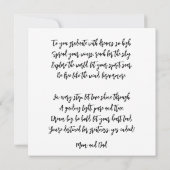 To you graduate with dreams so high
Spread your wings reach for the sky
Explore the world let your spirit soar
Be free like the wind
In every step let love shine through
A guiding light pure and true
Dream big be bold let your heart lead
You're destined for greatness, yes indeed!
Mom and Dad